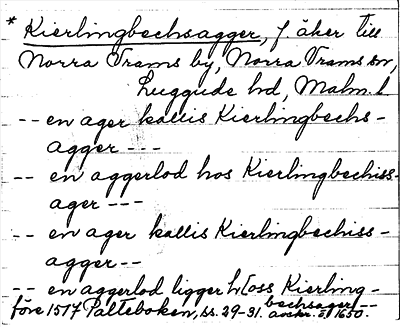 * Kierlingbechsagger, f. åker till
Norra Vrams by, Norra Vrams sn,
Luggude hd, Malm. l
-- en ager kallis Kierlingbechs-
agger ---
-- en aggerlod hos Kierlingbechiss-
ager ---
-- en ager kallis Kierlingbechiss-
agger --
-- en aggerlod ligger h[oss Kierling-
bechsager --
före 1517 Palteboken, ss. 29-31. avskr. af 1650.